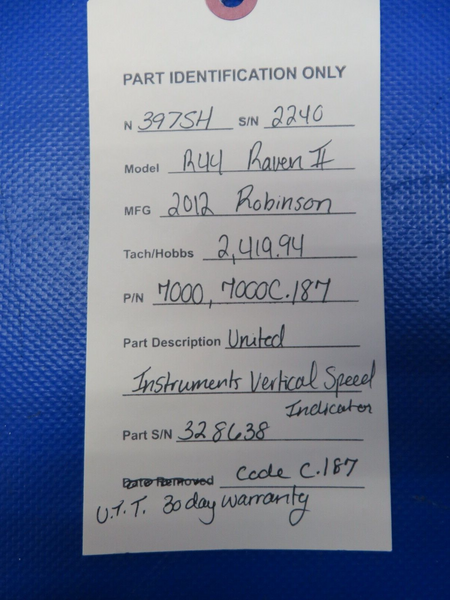 PART IDENTIFICATION ONLY
N 397SH S/N 2240
Model R44 Raven II
MFG 2012 Robinson
Tach/Hobbs 2,419.94
P/N 7000, 7000C.187
Part Description United
Instruments Vertical Speed
Indicator
Part S/N 328638
Date Removed Code C.187
U.T.T. 30 day warranty